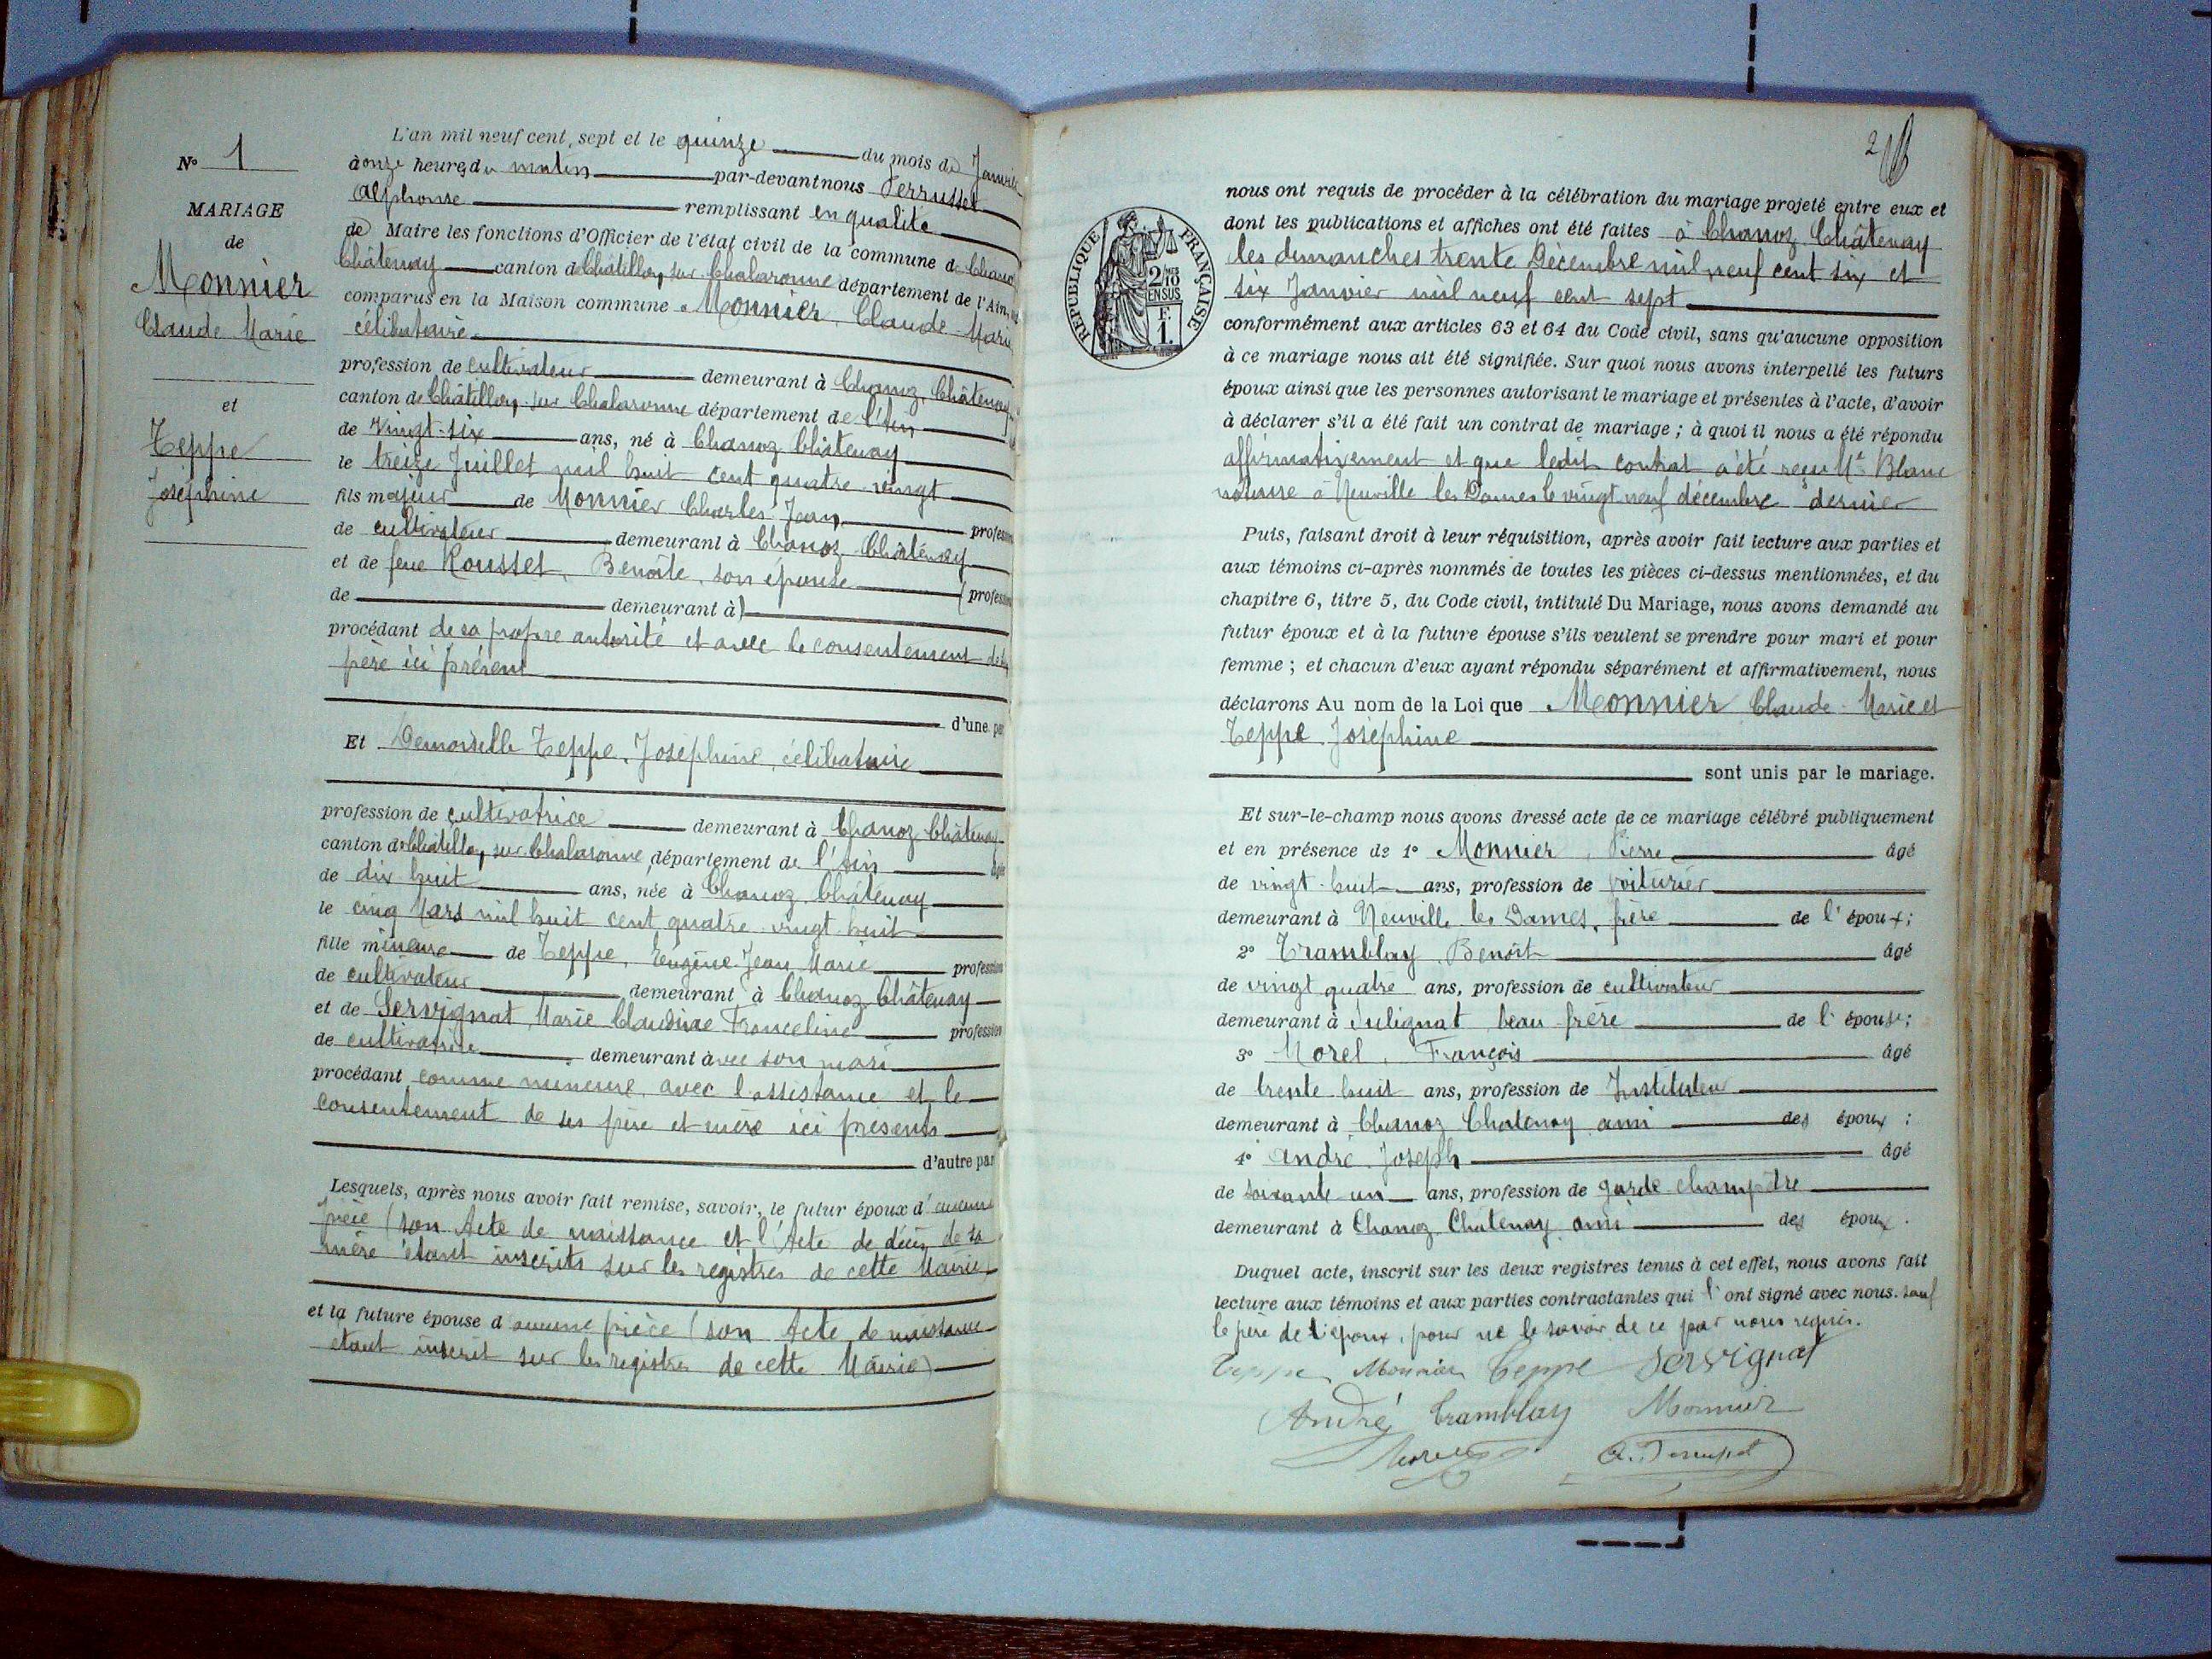 N° 1
MARIAGE
de
Monnier
Claude Marie
et
Teppe
Joséphine
L'an mil neuf cent, sept et le quinze du mois de Janvier
à onze heures du matin par-devant nous Perrusset
Alphonse remplissant en qualité
de Maire les fonctions d'Officier de l'état civil de la commune de Chanoz
Châtenay canton de Châtillon sur Chalaronne département de l'Ain,
comparus en la Maison commune Monnier, Claude-Marie
célibataire
profession de cultivateur demeurant à Chanoz Châtenay
canton de Châtillon sur Chalaronne département de l'Ain
de Vingt-six ans, né à Chanoz Châtenay
le treize Juillet mil huit cent quatre-vingt
fils majeur de Monnier Charles Jean profession
de cultivateur demeurant à Chanoz Châtenay
et de feue Rousset, Benoîte, son épouse (profession
de demeurant à)
procédant de sa propre autorité et avec le consentement de son
père ici présent
d'une part
Et Demoiselle Teppe, Joséphine, célibataire
profession de cultivatrice demeurant à Chanoz Châtenay
canton de Châtillon sur Chalaronne département de l'Ain âgée
de dix huit ans, née à Chanoz Châtenay
le cinq Mars mil huit cent quatre-vingt huit
fille mineure de Teppe, Eugène Jean Marie profession
de cultivateur demeurant à Chanoz Châtenay
et de Servignat Marie Claudine Franceline profession
de cultivatrice demeurant avec son mari
procédant comme mineure, avec l'assistance et le
consentement de ses père et mère ici présents
d'autre part
Lesquels, après nous avoir fait remise, savoir, le futur époux d'aucune
pièce (son Acte de naissance et l'Acte de décès de sa
mère étant inscrits sur les registres de cette Mairie)
et la future épouse d'aucune pièce (son Acte de naissance
étant inscrit sur les registres de cette Mairie)
2
RÉPUBLIQUE FRANÇAISE
2/10 EN SUS
1 F.
nous ont requis de procéder à la célébration du mariage projeté entre eux et
dont les publications et affiches ont été faites à Chanoz Châtenay
les dimanches trente Décembre mil neuf cent six et
six Janvier mil neuf cent sept
conformément aux articles 63 et 64 du Code civil, sans qu'aucune opposition
à ce mariage nous ait été signifiée. Sur quoi nous avons interpellé les futurs
époux ainsi que les personnes autorisant le mariage et présentes à l'acte, d'avoir
à déclarer s'il a été fait un contrat de mariage ; à quoi il nous a été répondu
affirmativement et que ledit contrat a été reçu Me Blanc
notaire à Neuville les Dames le vingt neuf décembre dernier
Puis, faisant droit à leur réquisition, après avoir fait lecture aux parties et
aux témoins ci-après nommés de toutes les pièces ci-dessus mentionnées, et du
chapitre 6, titre 5, du Code civil, intitulé Du Mariage, nous avons demandé au
futur époux et à la future épouse s'ils veulent se prendre pour mari et pour
femme ; et chacun d'eux ayant répondu séparément et affirmativement, nous
déclarons Au nom de la Loi que Monnier Claude Marie et
Teppe Joséphine
sont unis par le mariage.
Et sur-le-champ nous avons dressé acte de ce mariage célébré publiquement
et en présence de 1° Monnier, Pierre âgé
de vingt-huit ans, profession de voiturier
demeurant à Neuville les Dames, frère de l'époux ;
2° Tramblay Benoît âgé
de vingt quatre ans, profession de cultivateur
demeurant à Sulignat beau-frère de l'épouse ;
3° Morel, François âgé
de trente huit ans, profession de Instituteur
demeurant à Chanoz Chatenay ami des époux ;
4° André Joseph âgé
de soixante-un ans, profession de garde champêtre
demeurant à Chanoz Châtenay ami des époux.
Duquel acte, inscrit sur les deux registres tenus à cet effet, nous avons fait
lecture aux témoins et aux parties contractantes qui l'ont signé avec nous. sauf
le père de l'époux, pour ne le savoir de ce par nous requis.
Teppe Monnier Teppe Servignat
André Tramblay Monnier
Morel A. Perrusset